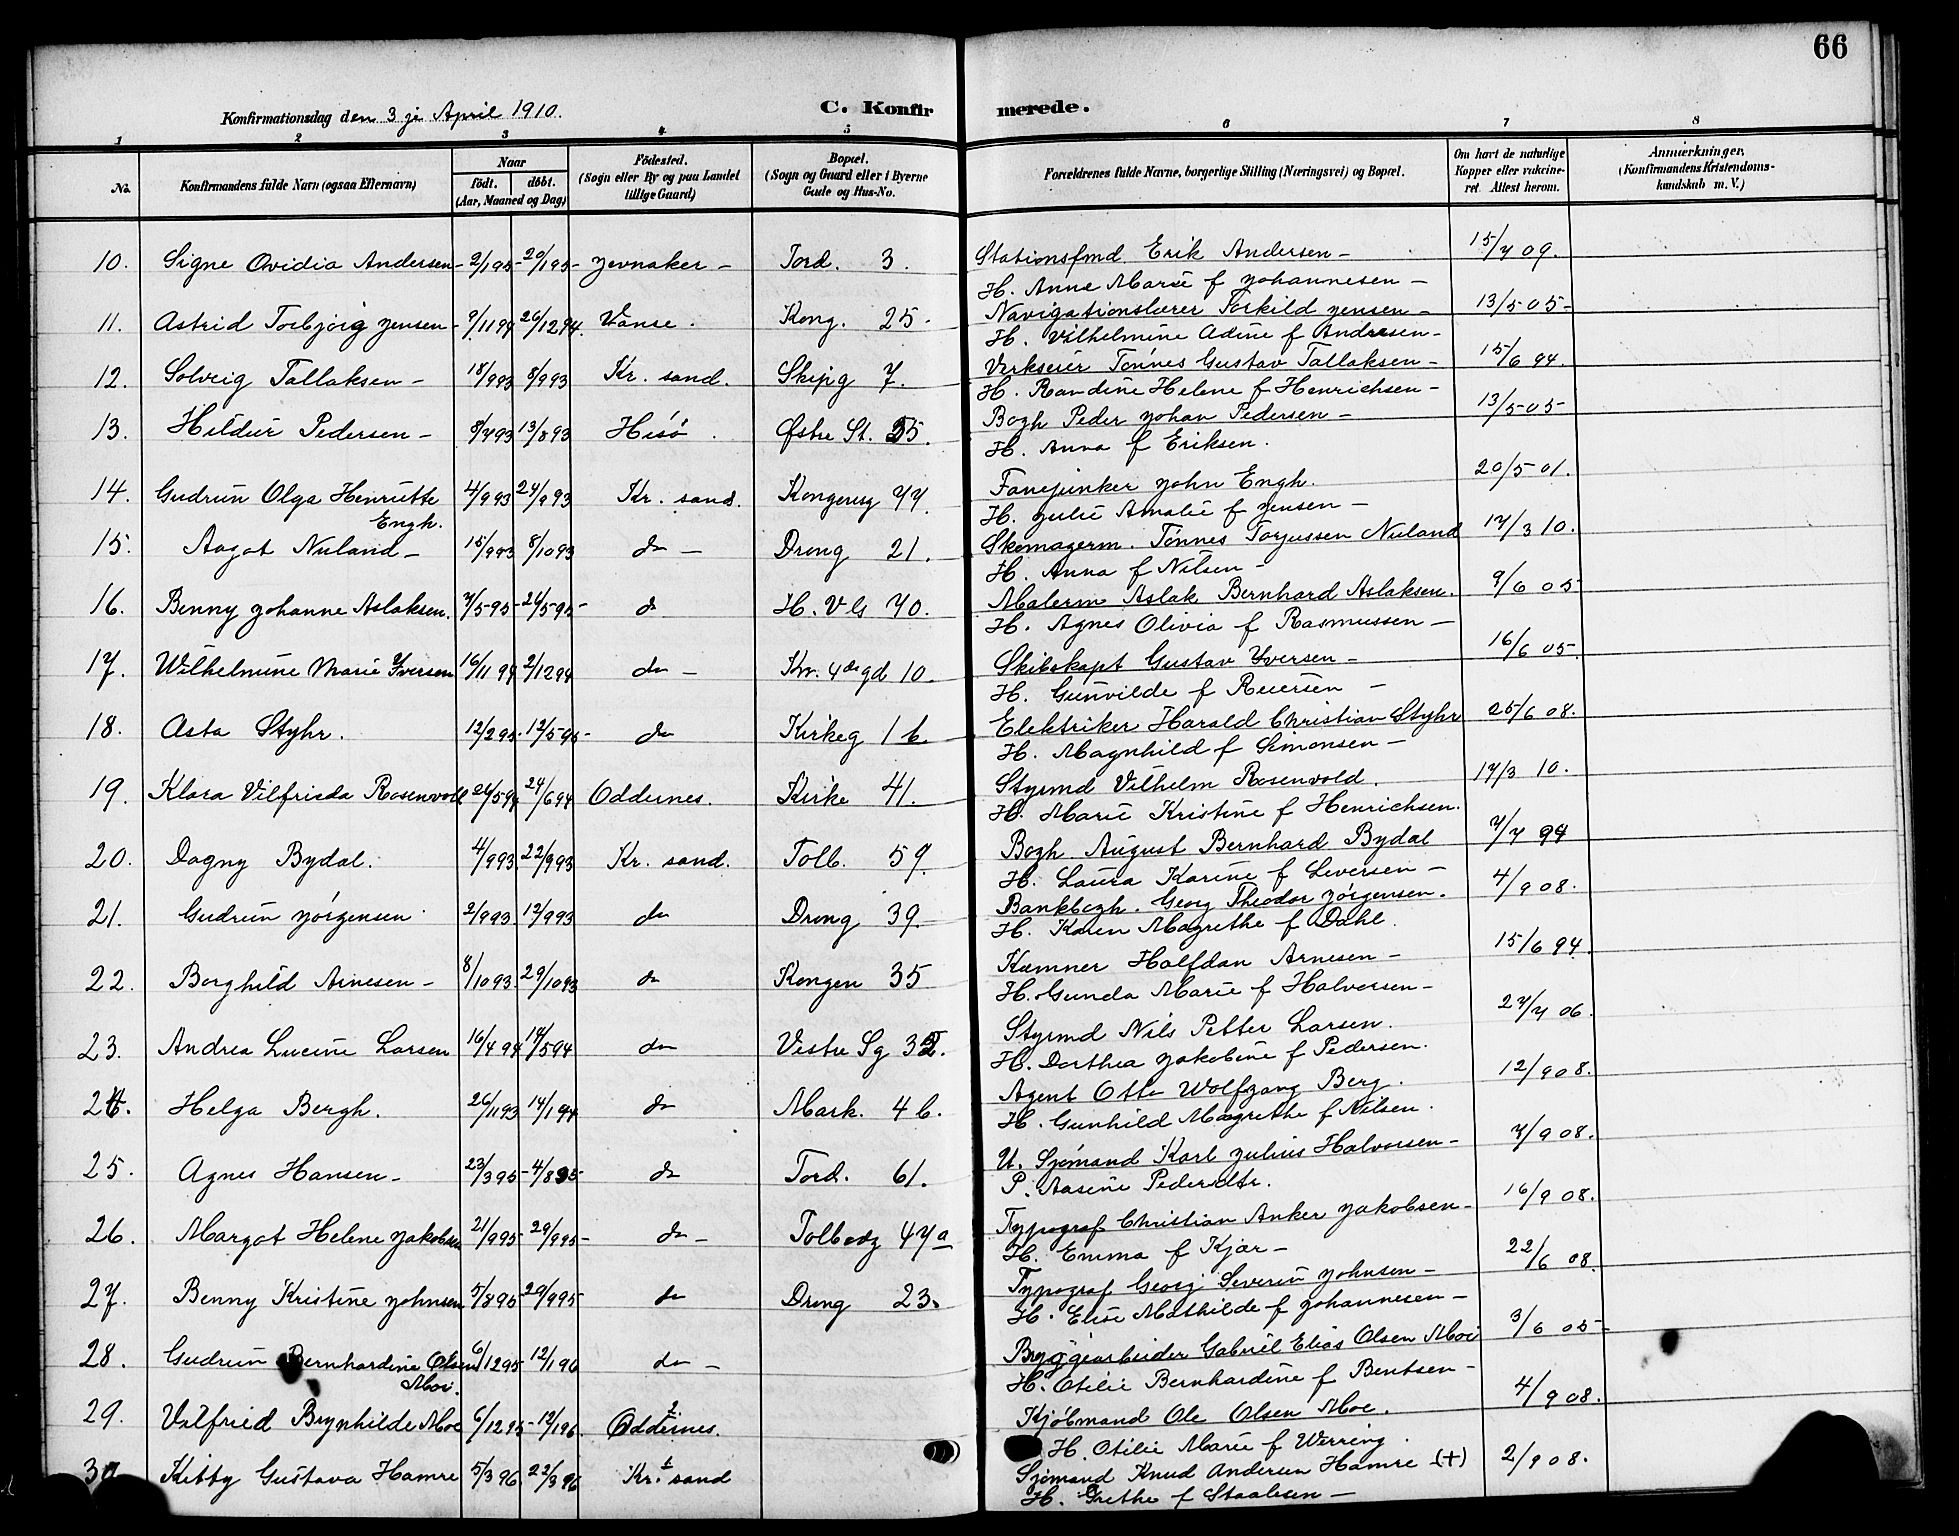 66
Konfirmationsdag den 3 je April 1910.
C. Konfirmerede.
1 2 3 4 5 6 7 8
No.
Konfirmandens fulde Navn (ogsaa Efternavn)
Naar
født. døbt.
(Aar, Maaned og Dag)
Fødested.
(Sogn eller By og paa Landet
tillige Gaard)
Bopæl.
(Sogn og Gaard eller i Byerne
Gade og Hus-No.
Forældrenes fulde Navne, borgerlige Stilling (Næringsvei) og Bopæl.
Om havt de naturlige
Kopper eller vakcine-
ret. Attest herom.
Anmærkninger.
(Konfirmandens Kristendoms-
kundskab m. V.)
10. Signe Ovidia Andersen - 2/1 95 - 20/1 95 - Jevnaker - Tord. 3. Stationsfmd Erik Andersen - 15/7 09.
H. Anne Marie f Johannesen -
11. Astrid Torbjörg Jensen - 9/11 94 26/12 94. Vanse. Kong. 25. Navigationslærer Torkild Jensen - 13/5 05 -
H. Vilhelmine Adine f Andresen -
12. Solveig Tallaksen - 18/9 93 8/9 93 Kr. sand. Skipg 7. Verkseier Tönnes Gustav Tallaksen - 15/6 94.
H. Randine Helene f Henrichsen -
13. Hildur Pedersen - 8/7 93 13/8 93 Hisö. Østre St. 25. Bogh Peder Johan Pedersen - 13/5 05 -
H. Anna f Eriksen.
14. Gudrun Olga Henriette 4/9 93 24/9 93 Kr. sand. Kongensg 77. Fanejunker John Engh. 20/5 01.
Engh. H. Julie Amalie f Jensen -
15. Aagot Nuland - 15/9 93 8/10 93 do - Drong 21. Skomagerm. Tönnes Torjussen Nuland 17/3 10.
H. Anna f Nilsen -
16. Benny Johanne Aslaksen. 7/5 95 - 24/5 95 - do H. Vls 70. Malerm Aslak Bernhard Aslaksen. 9/6 05
H. Agnes Olivia f Rasmussen -
17. Wilhelmine Marie Iversen 16/11 94 2/12 94 do - Kv. 4de gd 10. Skibskapt Gustav Iversen - 16/6 05.
H. Gunvilde f Reiersen -
18. Asta Styhr. 12/2 95. 12/5 95 - do Kirkeg 1 b Elektriker Harald Christian Styhr 25/6 08.
H. Magnhild f Simonsen -
19. Klara Vilfrida Rosenvold 26/5 94 24/6 94 Oddernes. Kirke 41. Styrmd Vilhelm Rosenvold. 17/3 10.
H. Marie Kristine f Henrichsen.
20. Dagny Bydal. 4/9 93 22/9 93 Kr. sand. Tolb. 59. Bogh August Bernhard Bydal 7/7 94
H. Laura Karine f Leversen -
21. Gudrun Jörgensen. 2/9 93. 12/9 93 do Drong 39. Bankbogh. Georg Theodor Jörgensen. 4/9 08.
H. Karen Magrethe f Dahl.
22. Borghild Arnesen - 8/10 93. 29/10 93 do Kongen 35 Kæmner Halfdan Arnesen - 15/6 94.
H. Gunda Marie f Halvorsen -
23. Andrea Lucine Larsen 16/4 94 14/5 94 do Vestre Sg 32. Styrmd Nils Petter Larsen. 27/7 06.
H. Dorthea Jakobine f Pedersen.
24. Helga Bergh. 26/11 93 14/1 94 do Mark. 4 b. Agent Otto Wolfgang Berg. 12/9 08.
H. Gunhild Magrethe f Nilsen.
25. Agnes Hansen - 23/3 95 - 4/8 95 - do Tord. 61. U. Sjömand Karl Julius Halvorsen - 7/9 08.
P. Aasine Pedersdtr.
26. Margot Helene Jakobsen 21/9 95 29/9 95 - do - Tolbodg 47a Typograf Christian Anker Jakobsen - 16/9 08.
H. Emma f Kjær -
27. Benny Kristine Johnsen 5/8 95 29/9 95 do Drong 23. Typograf Georg Severin Johnsen - 22/6 08.
H. Elise Mathilde f Johannesen -
28. Gudrun Bernhardine Olsen 6/12 95 12/1 96 do - Bryggearbeider Gabriel Elias Olsen Moi 3/6 05 -
Moi. H. Otilie Bernhardine f Bentsen -
29. Valfried Brynhilde Moe 6/12 95 - 12/1 96. Oddernes. Kjöbmand Ole Olsen Moe. 4/9 08.
H. Otilie Marie f Werring.
30. Kitty Gustava Hamre 5/3 96. 22/3 96 Kr. sand Sjömand Knud Andersen Hamre (+) 2/9 08.
H. Grethe f Staalesen -